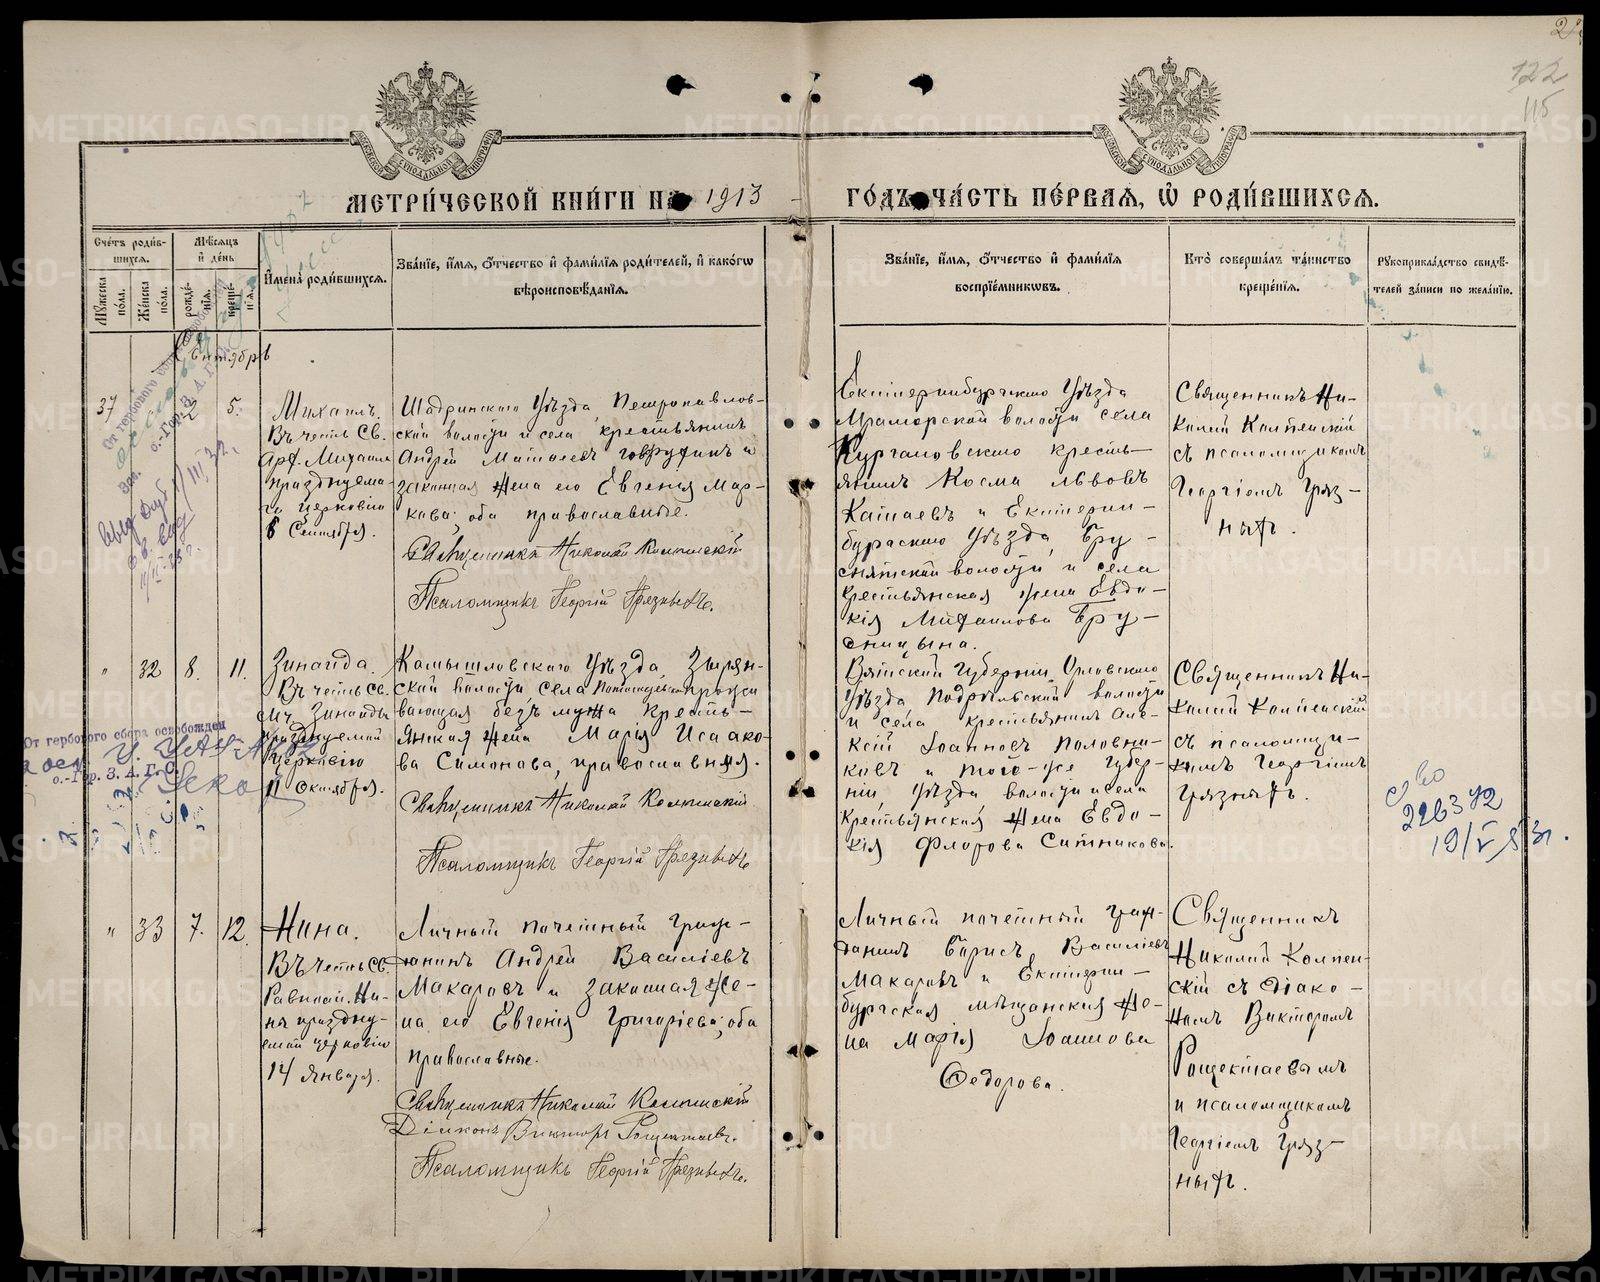 122
115
МЕТРИ́ЧЕСКОЙ КНИ́ГИ НА 1913
ГО́ДЪ ЧА́СТЬ ПЕ́РВАЯ, Ѽ РОДИ́ВШИХСЯ.
Сче́тъ роди́вшихся.
Мѣ́сяцъ и҆ де́нь
Мꙋ́жеска по́ла.
Же́нска по́ла.
рожде́нїѧ.
креще́нїѧ.
И҆мена̀ роди́вшихсѧ.
Зва́нїе, и҆́мѧ, ѻ҆́тчество и҆ фами́лїѧ роди́телей, и҆ како́гѡ
вѣроисповѣ́данїѧ.
Зва́нїе, и҆́мѧ, ѻ҆́тчество и҆ фами́лїѧ
воспрїе́мникѡвъ.
Кто̀ соверша́лъ та́инство
креще́нїѧ.
Рꙋкоприкла́дство свидѣ́-
телей за́писи по жела́нїю.
Сентябрь
37
5.
Михаилъ.
Въ честь Св.
Арх. Михаила
празднуема-
го церковію
6 Сентября.
Шадринскаго Уѣзда, Петропавлов-
ской волости и села крестьянинъ
Андрей
законная жена его Евгенія Мар-
кова; оба православные.
Священникъ Николай Колпенскій
Псаломщикъ Георгій Грязныхъ.
Екатеринбургскаго Уѣзда
Мраморской волости села
Кургановскаго кресть-
янинъ Косма Львовъ
Катаевъ и Екатерин-
бургскаго Уѣзда, Бру-
снятской волости и села
крестьянская жена Евдо-
кія Михаилова Бру-
сницына.
Священникъ Ни-
колай Колпенскій
съ псаломщикомъ
Георгіемъ Гряз-
ныхъ.
" 32 8. 11.
Зинаида.
Въ честь Св.
мч. Зинаиды
празднуемой
Церковію
11 Октября.
Камышловскаго Уѣзда, Зырян-
ской волости села прожи
вающая безъ мужа кресть-
янская жена Марія Исаако-
ва Симонова, православная.
Священникъ Николай Колпенскій
Псаломщикъ Георгій Грязныхъ
Вятской Губерніи, Орловскаго
Уѣзда Подрѣльской волости
и села крестьянинъ Але-
ксій Іоанновъ Половни-
ковъ и той-же Губер-
ніи, Уѣзда, волости и села
Крестьянская жена Евдо-
кія Флорова Ситникова.
Священникъ Ни-
колай Колпенскій
съ псаломщи-
комъ Георгіемъ
Грязныхъ.
От гербового сбора освобожден
о.-Гор. З. А. Г. С.
226372
19/V 53г.
" 33 7. 12.
Нина.
Въ честь Св.
Равноап. Ни-
ны праздну-
емой церковію
14 Января.
Личный почетный граж-
данинъ Андрей Василіевъ
Макаровъ и законная же-
на его Евгенія Григоріева; оба
православные.
Священникъ Николай Колпенскій
Діаконъ Викторъ Рощектаевъ.
Псаломщикъ Георгій Грязныхъ.
Личный почетный граж-
данинъ Борисъ Василіевъ
Макаровъ и Екатерин-
бургская мѣщанская же-
на Марія Іоаннова
Федорова.
Священникъ
Николай Колпен-
скій съ діако-
номъ Викторомъ
Рощектаевымъ
и псаломщикомъ
Георгіемъ Гряз-
ныхъ.